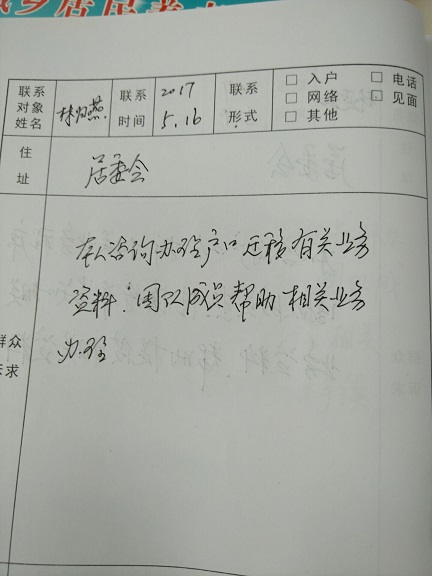 联系对象姓名 林归燕 联系时间 2017 5.16 联系形式 □ 入户 □ 电话 □ 网络 □ 见面 □ 其他
住址 居委会
本人咨询办理户口迁移有关业务
资料:团队成员帮助相关业务
办理
群众
诉求